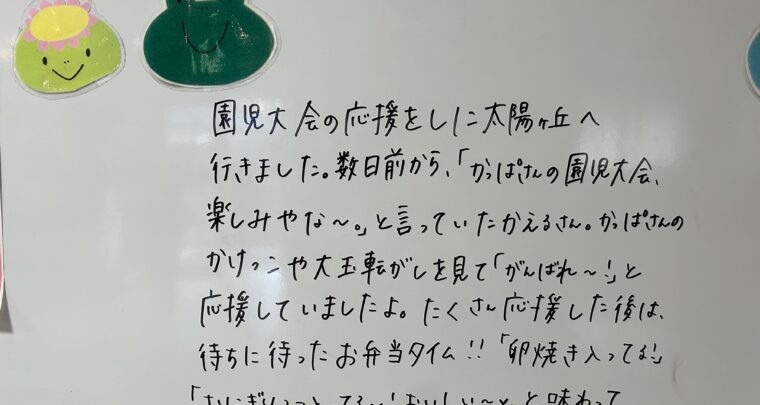 園児大会の応援をしに太陽ヶ丘へ
行きました。数日前から、「かっぱさんの園児大会、
楽しみやな〜。」と言っていたかえるさん。かっぱさんの
かけっこや大玉転がしを見て「がんばれ〜!」と
応援していましたよ。たくさん応援した後は、
待ちに待ったお弁当タイム!!「卵焼き入ってる!」
おいしい〜」と味わって